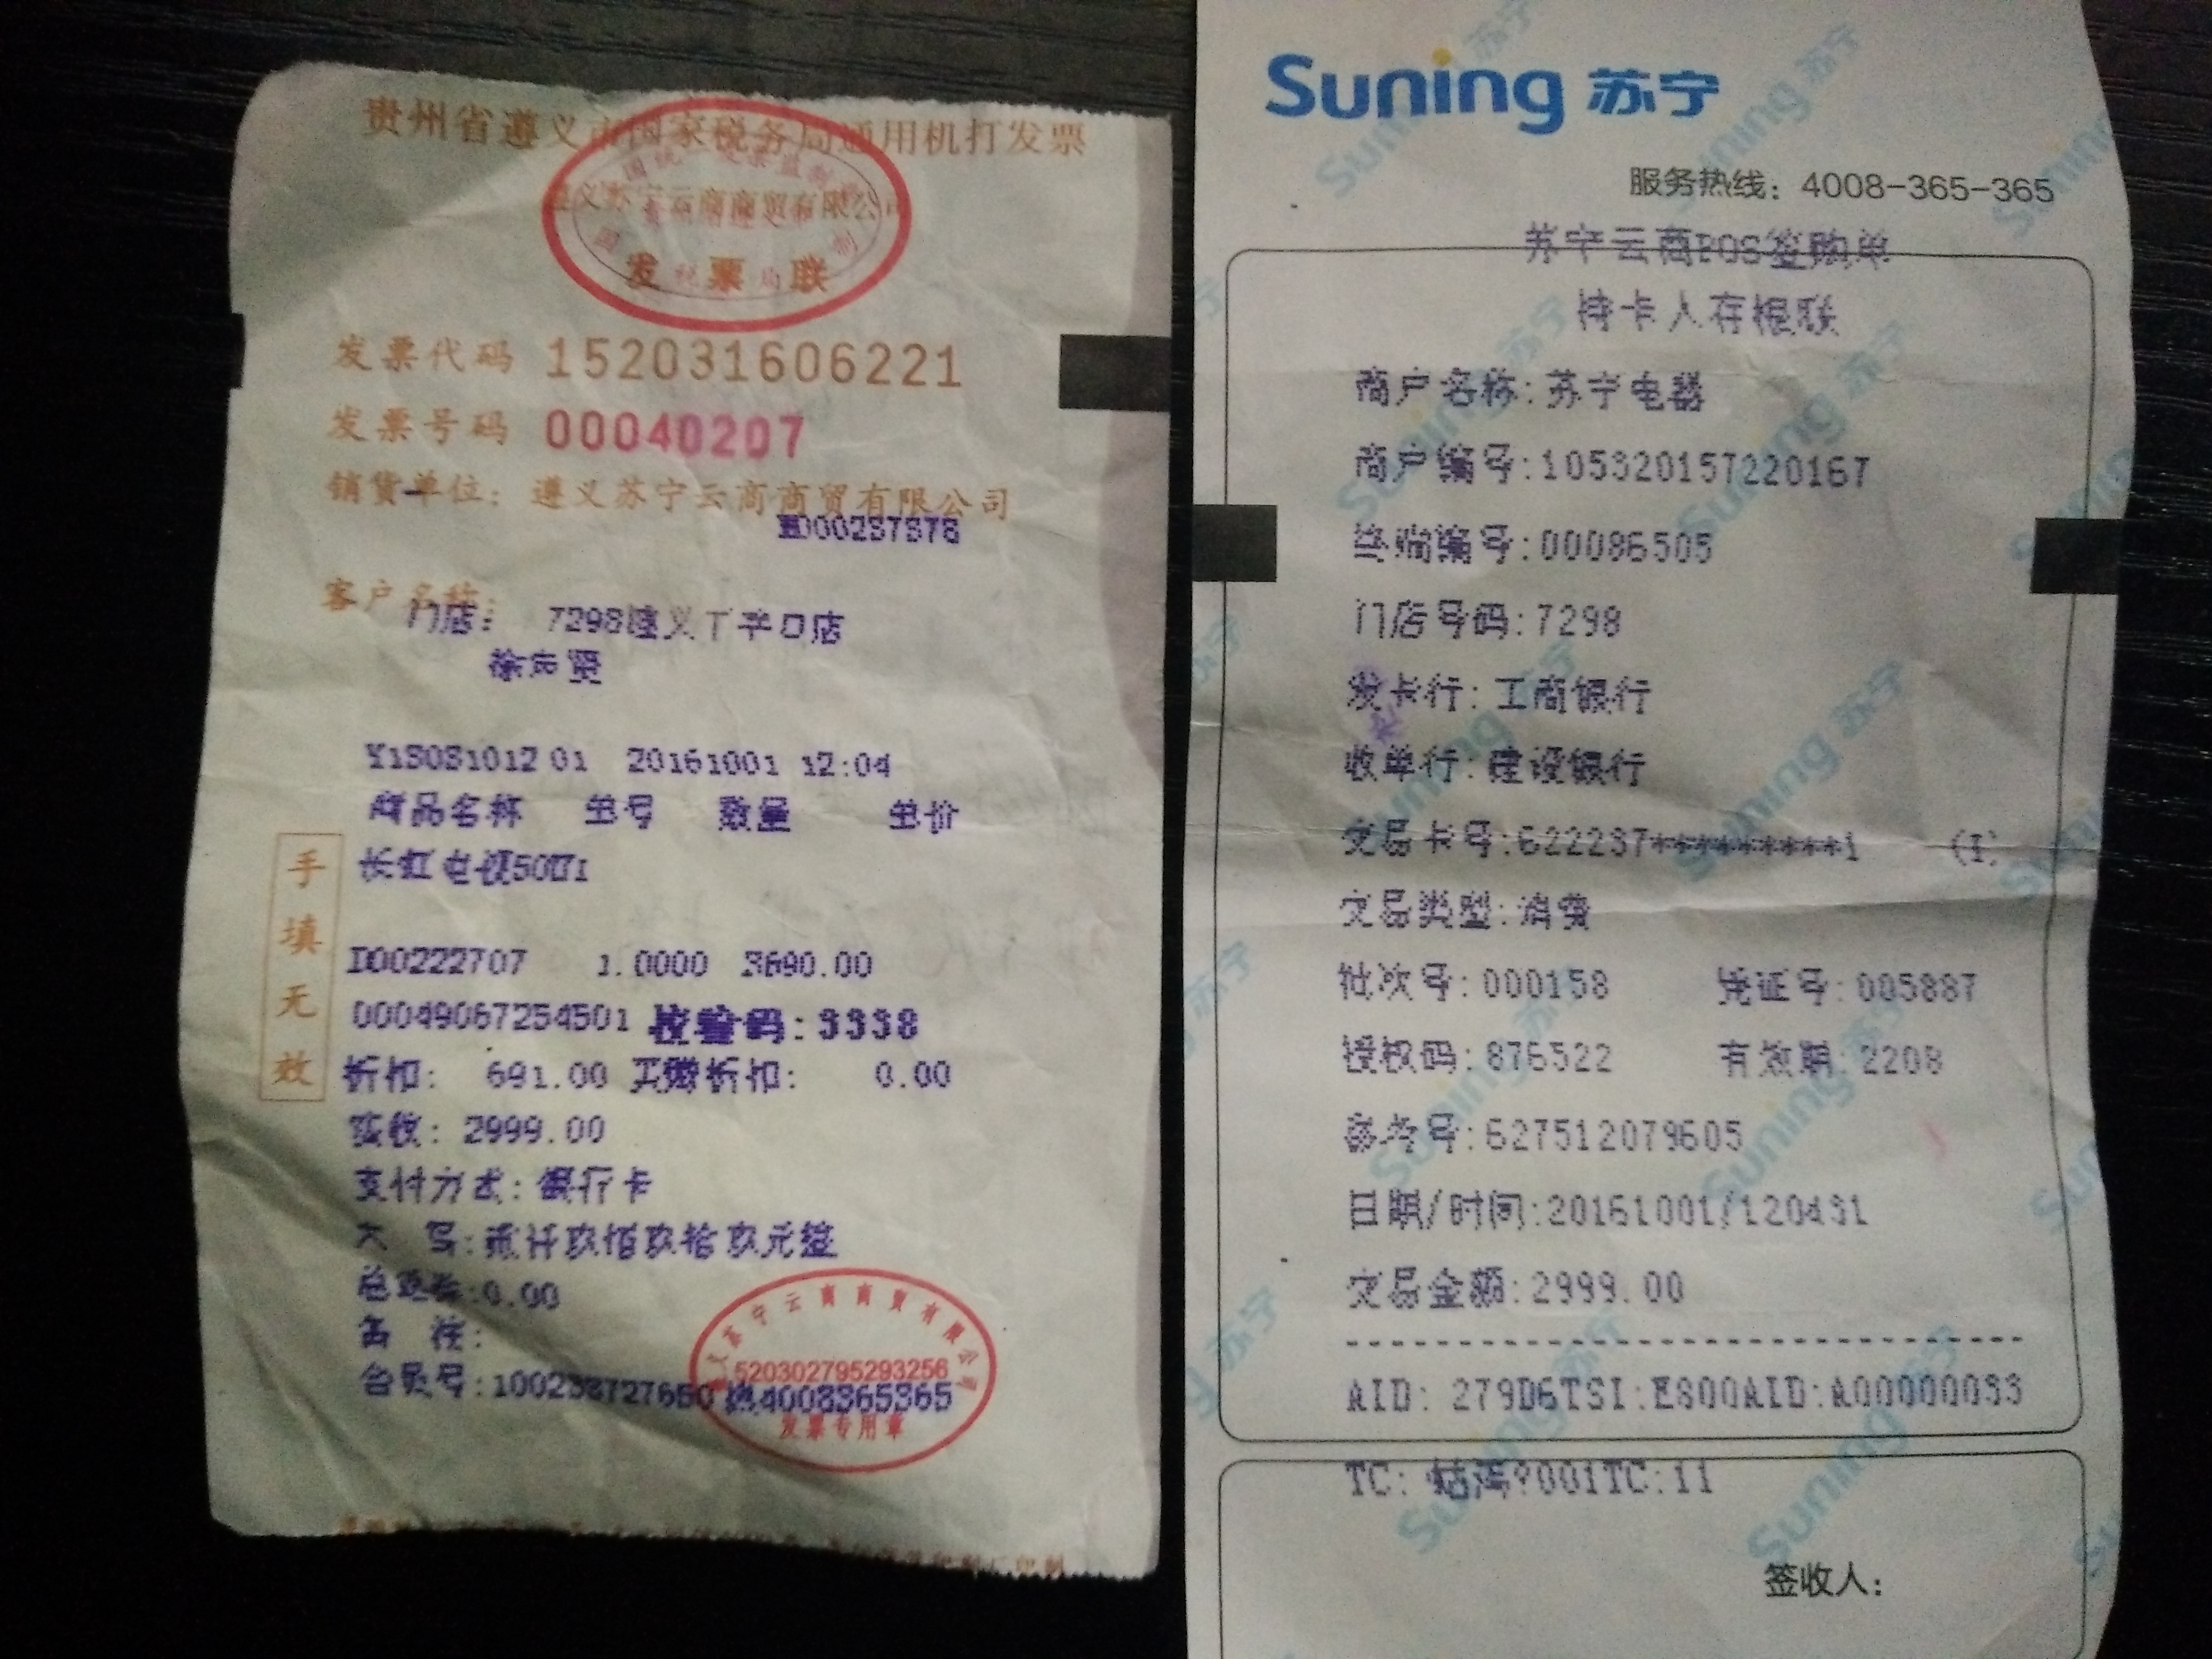 贵州省遵义市国家税务局通用机打发票
遵义苏宁云商商贸有限公司
发票联
发票代码 152031606221
发票号码 00040207
销货单位：遵义苏宁云商商贸有限公司
客户名称：
门店： 7298遵义丁字口店
徐志贤
20161001 12:04
商品名称 单号 数量 单价
长虹电视50U1
手填无效
D00222707 1.0000 3690.00
00049067254501 校验码:3338
折扣: 691.00 买赠折扣: 0.00
实收: 2999.00
支付方式:银行卡
大 写:贰仟玖佰玖拾玖元整
0.00
备 注:
会员号:100238727650 4008365365
遵义苏宁云商商贸有限公司
520302795293256
发票专用章
Suning 苏宁
服务热线：4008-365-365
苏宁云商POS签购单
持卡人存根联
商户名称:苏宁电器
商户编号:105320157220167
终端编号:00086505
门店号码:7298
发卡行:工商银行
收单行:建设银行
交易卡号:622237*********1 (I)
交易类型:消费
批次号:000158 凭证号:005887
授权码:876522 有效期:2208
参考号:627512079605
日期/时间:20161001/120431
交易金额:2999.00
AID: 279D6TSI:E800AID:A00000033
TC: 001TC:11
签收人：